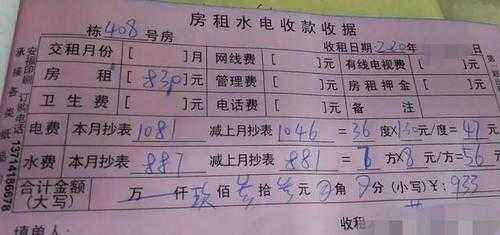 房租水电收款收据
栋408号房 收租日期:2020年 日
交租月份 [ ]月 网线费 [ ]元 有线电视费 [ ]元
房租 [830]元 管理费 [ ]元 房租押金 [ ]元
卫生费 [ ]元 电话费 [ ]元 备注
电费 本月抄表 1081 减上月抄表 1046 = 36 度×1.30元/度= 47元
水费 本月抄表 887 减上月抄表 881 = 7方×8元/方=56元
合计金额(大写) 万 仟 玖佰 叁拾 叁元 0角 0分 (小写)¥: 933
填单人: 收租
安福印刷 订购电话:13714166678
承接各类纸